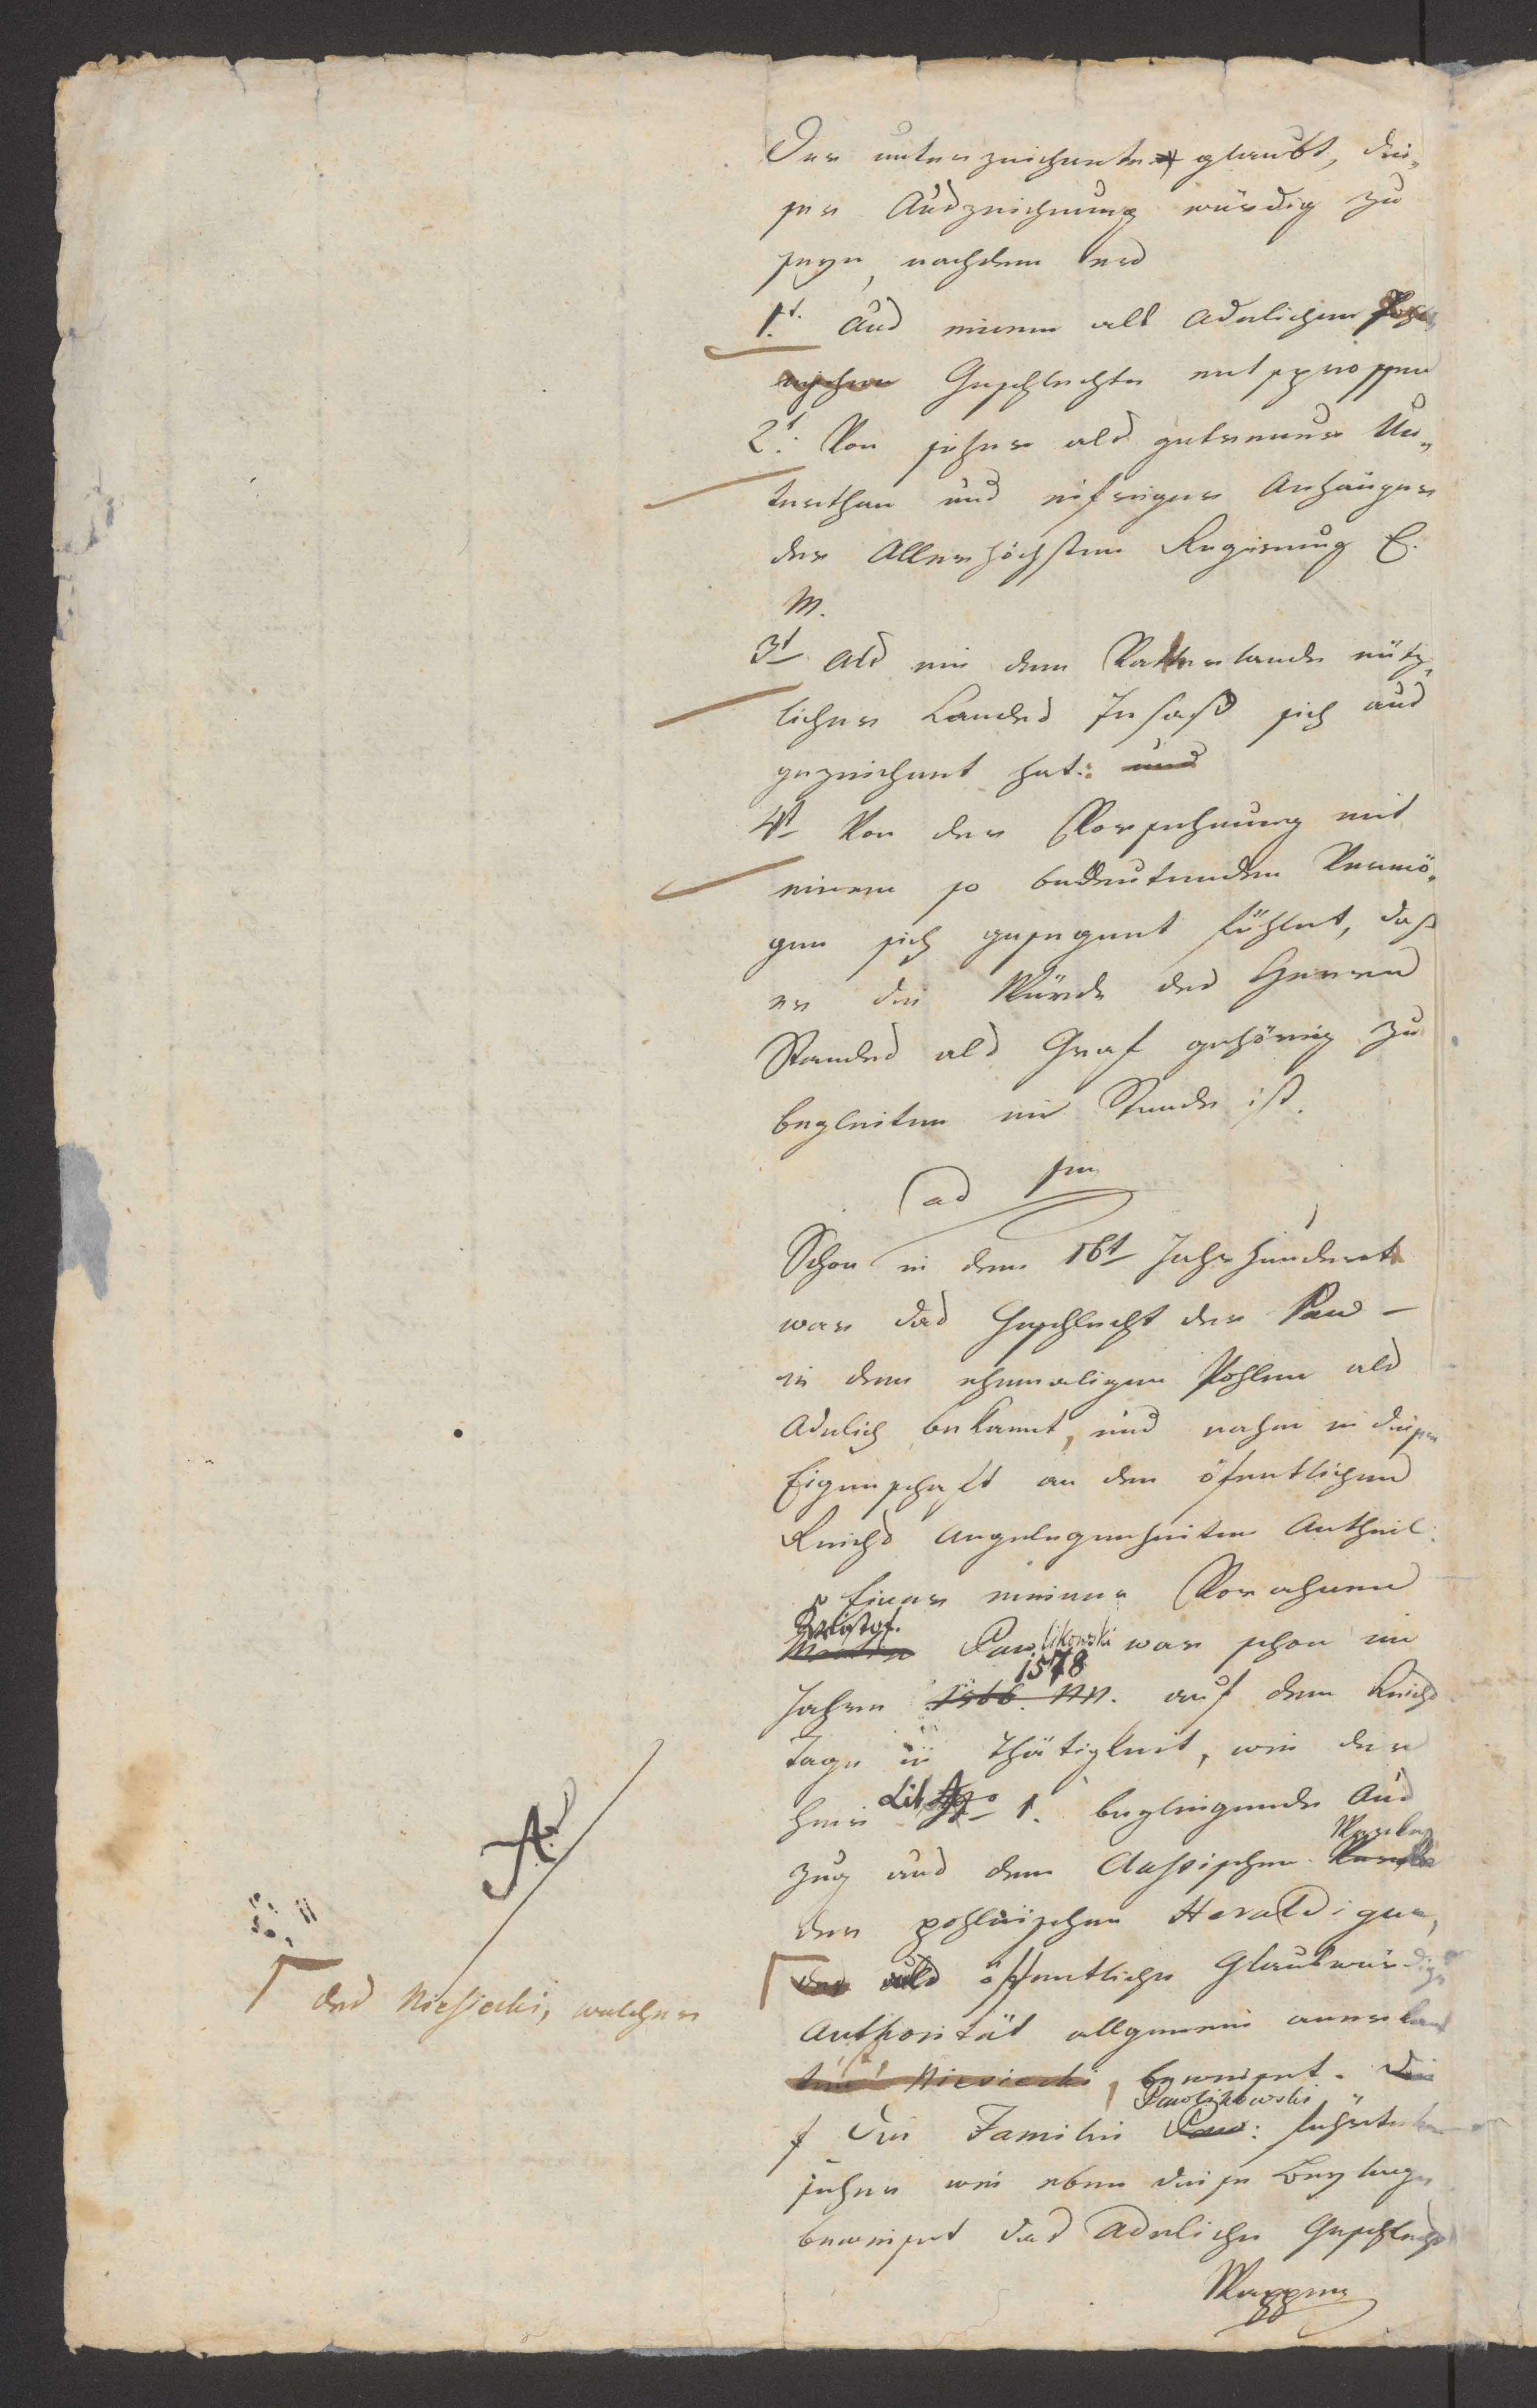 Der unterzeichnete glaubt, die„
ser Auszeichnung würdig zu
seyn, nachdem er
1t. Aus einem alt adelichen Pohl„
nischen Geschlechte entsprossen
2t. Von jeher als getreuer Un„
terthan und eifriger Anhänger
der Allerhöchsten Regierung E.
M.
3t als ein dem Vatterlande nütz„
licher Landes Insaß sich aus
gezeichnet hat: und
4t Von der Vorsehung mit
einem so bedeutenden Vermö„
gen sich gesegnet fühlet, daß
er die Würde des Herren
Standes als Graf gehörig zu
begleiten im Stande ist.
ad 1m
Schon in dem 16t Jahrhundert
war das Geschlecht der Paw –
in dem ehemaligen Pohlen als
Adelich bekannt, und nahm in dieser
Eigenschaft an den öfentlichen
Reichs Angelegenheiten Antheil.
Einer meiner Vorahnen
Kristof.
Martin Pawlikowski war schon im
1578
Jahre 1566. auf dem Reichs
Tage in Thätigkeit, wie der
hier Lit A 1. beyliegende Aus
Werke
zug aus dem classischen Werke
des pohlnischen Heraldiquer,
Γ der als öffentliche Glaubwürdige
A
Γ des Niesiecki, welcher
Authorität allgemein anerkant
ist Niesiecki, beweiset. Die
Pawlikowski
Die Familie Paw: führte
jeher wie eben diese Beylage
beweiset das Adeliche Geschlechts
Wappen